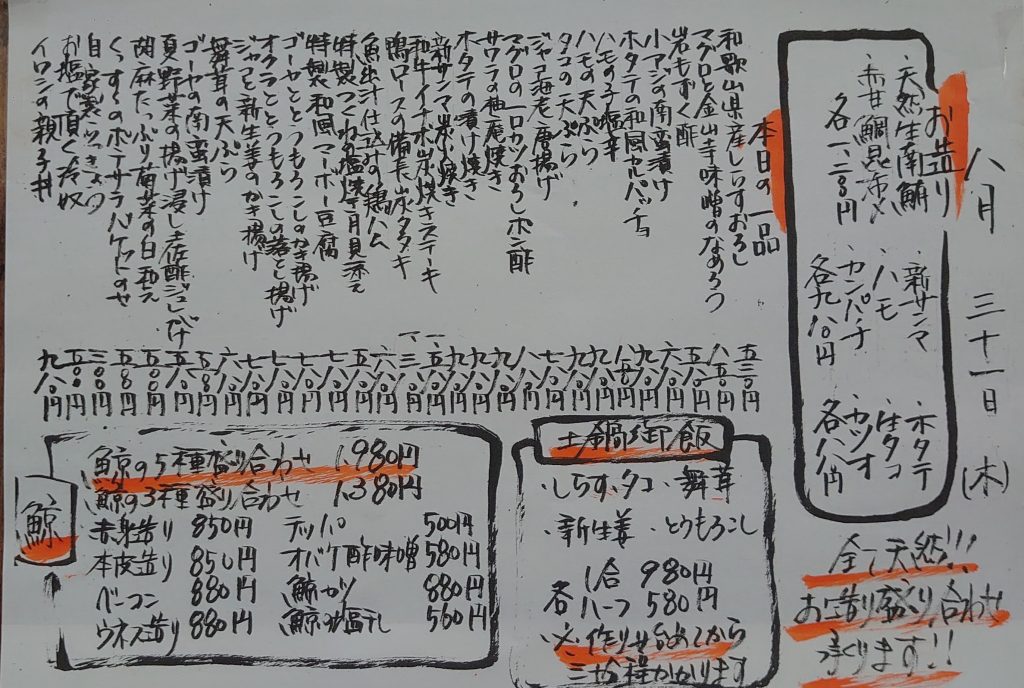 八月 三十一日 (木)
お造り
・天然生南鮪
・赤井鯛昆布〆
各一、二八〇円
・新サンマ
・ハモ
・カンパチ
各九八〇円
・ホタテ
・生タコ
・カツオ
各八八〇円
全て天然!!!
お造り盛り合わせ
つくります!!
本日の一品
和歌山県産しらすおろし 五三〇円
マグロと金山寺味噌のなめろう 八五〇円
岩もずく酢 五八〇円
小アジの南蛮漬け 六八〇円
ホタテの和風カルパッチョ 九八〇円
ハモの子塩辛
ハモの天ぷら 九八〇円
タコの天ぷら 九八〇円
ジャコ海老唐揚げ 七八〇円
マグロの一口カツおろしポン酢 八八〇円
サワラの柚庵焼き 九八〇円
ホタテの漬け焼き 九八〇円
新サンマ炭火焼き 九八〇円
和牛イチボ炭焼きステーキ
鴨ロースの備長炭タタキ
魚出汁仕込みの鶏ハム 六八〇円
特製つくね塩焼き月見添え
特製和風マーボー豆腐 七八〇円
ゴーヤととうもろこしのかき揚げ 七八〇円
オクラととうもろこしの落とし揚げ 七八〇円
ジャコと新生姜のかき揚げ 七八〇円
舞茸の天ぷら 六八〇円
ゴーヤの南蛮漬け 五八〇円
夏野菜の揚げ浸し土佐酢ジュレがけ
胡麻たっぷり菊菜の白和え 五八〇円
くんすぅのポテサラバケットのせ
自家製 三〇〇円
お塩で頂く冷奴 五〇〇円
イワシの親子丼 九八〇円
鯨
鯨の5種盛り合わせ 1,980円
鯨の3種盛り合わせ 1,380円
赤身造り 850円 テッパ 500円
本皮造り 850円 オバケ酢味噌 580円
ベーコン 880円 鯨カツ 880円
ウネス造り 880円 鯨の塩干し 560円
土鍋御飯
・しらす ・タコ ・舞茸
・新生姜 ・とうもろこし
各 1合 980円
ハーフ 580円
※ 作り始めてから
三十分程かかります